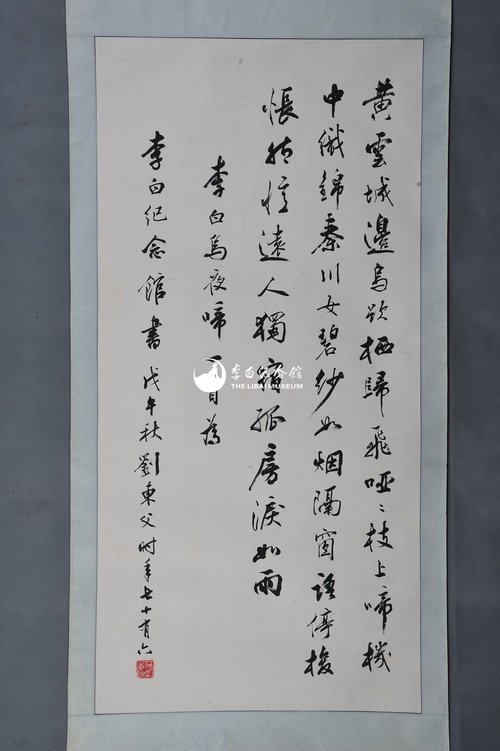 黄雲城邊烏欲栖歸飛啞〻枝上啼機
中織錦秦川女碧紗如烟隔窗語停梭
悵然憶遠人獨宿孤房淚如雨
李白烏夜啼一首為
李白纪念館書戊午秋劉東父时年七十有六
李白纪念館
THE LIBAI MUSEUM